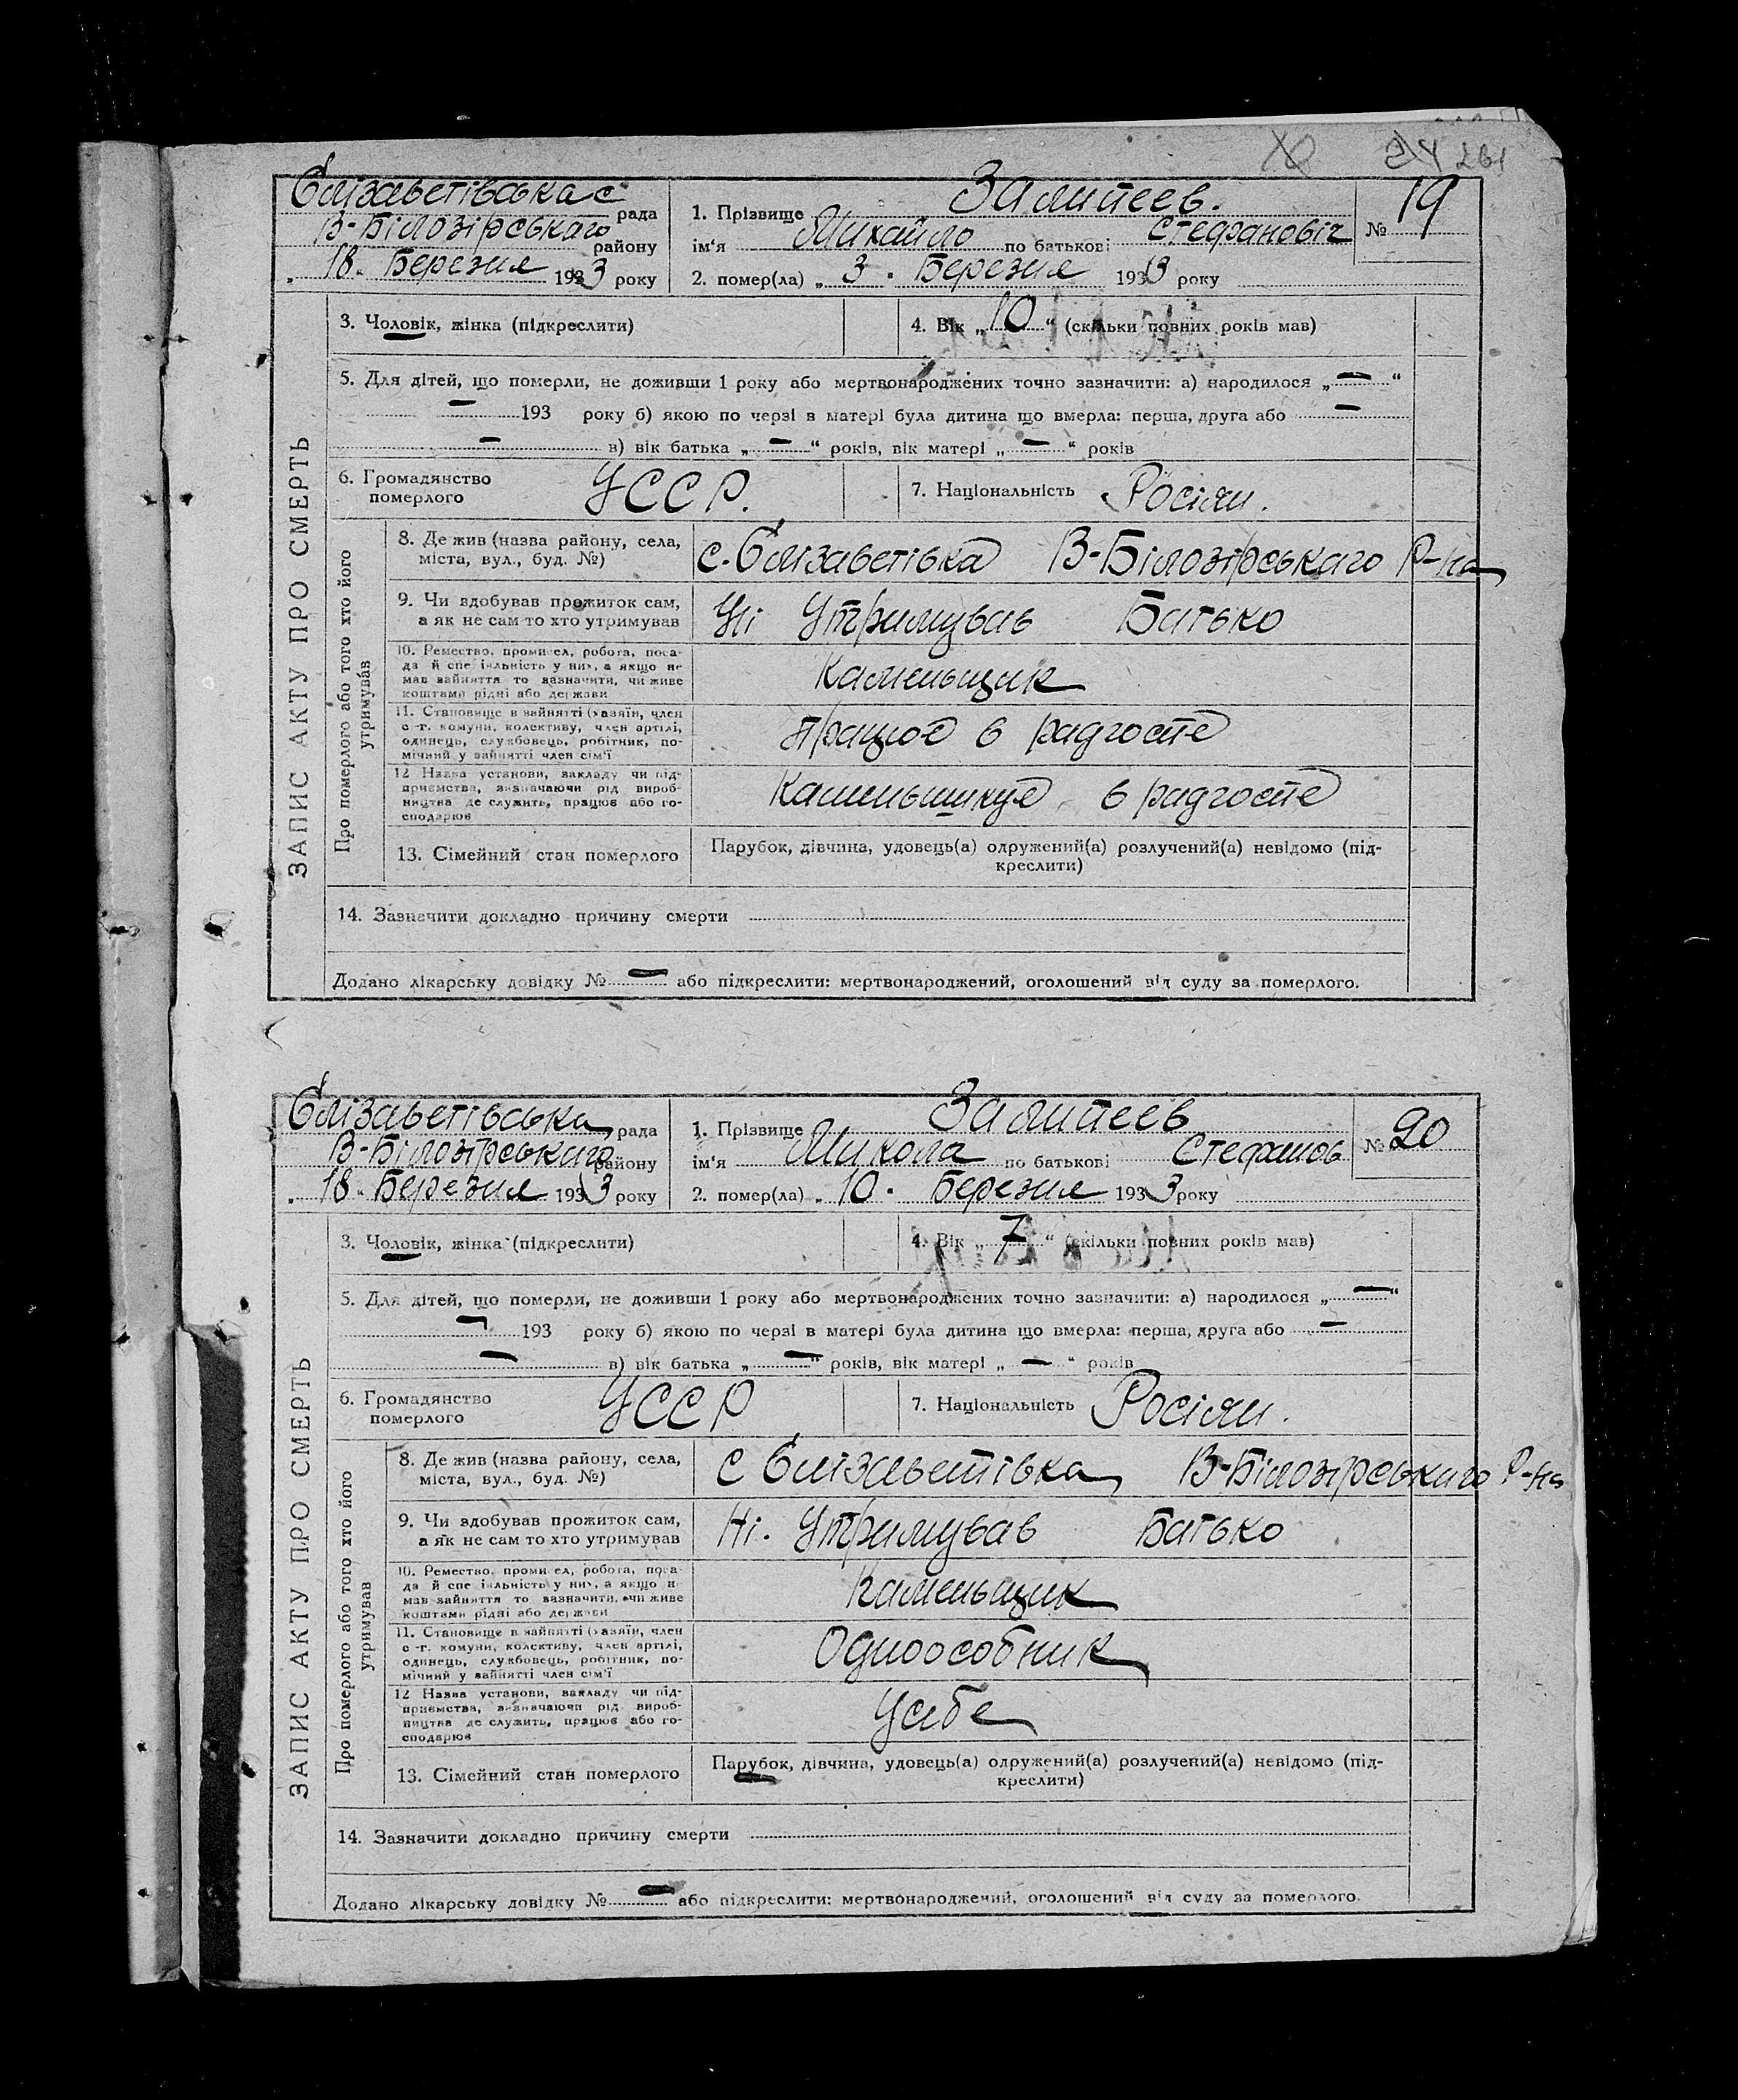 261
Єлізаветівська с
рада
В-Білозірського
району
„ 18 " Березня 1933 року
1. Прізвище Залипеев.
ім'я Михайло по батькові Стефановіч
№ 19
2. помер(ла) „ 3 " Березня 1933 року
ЗАПИС АКТУ ПРО СМЕРТЬ
3. Чоловік, жінка (підкреслити)
4. Вік „ 10 “ (скільки повних років мав)
5. Для дітей, що померли, не доживши 1 року або мертвонароджених точно зазначити: а) народилося „ — “
— 193 року б) якою по черзі в матері була дитина що вмерла: перша, друга або —
— в) вік батька „ — “ років, вік матері „ — “ років
6. Громадянство
померлого
УССР.
7. Національність Росіян.
Про померлого або того хто його
утримував
8. Де жив (назва району, села,
міста, вул., буд. №)
с. Єлізаветівка В-Білозірського Р-на
9. Чи здобував прожиток сам,
а як не сам то хто утримував
Ні Утримував Батько
10. Ремество, промисел, робота, поса-
да й спеціяльність у них, а якщо не
мав зайняття то зазначити, чи живе
коштами рідні або держави
Каменьщик
11. Становище в зайнятті (хазяїн, член
с.-г. комуни, колективу, член артілі,
одинець, службовець, робітник, по-
мічний у зайнятті член сім'ї
працює в радгоспе
12 Назва установи, закладу чи під-
приємства, зазначаючи рід вироб-
ництва де служить, працює або го-
сподарює
Каменьщикуе в радгоспе
13. Сімейний стан померлого
Парубок, дівчина, удовець(а) одружений(а) розлучений(а) невідомо (під-
креслити)
14. Зазначити докладно причину смерти
Додано лікарську довідку № — або підкреслити: мертвонароджений, оголошений від суду за померлого.
Єлізаветівська
рада
В-Білозірського
району
„ 18 " Березня 1933 року
1. Прізвище Залипеев
ім'я Микола по батькові Стефанов
№ 20
2. помер(ла) „ 10 " Березня 1933 року
ЗАПИС АКТУ ПРО СМЕРТЬ
3. Чоловік, жінка (підкреслити)
4. Вік „ 7 “ (скільки повних років мав)
5. Для дітей, що померли, не доживши 1 року або мертвонароджених точно зазначити: а) народилося „ — “
— 193 року б) якою по черзі в матері була дитина що вмерла: перша, друга або —
— в) вік батька „ — “ років, вік матері „ — “ років
6. Громадянство
померлого
УССР
7. Національність Росіян.
Про померлого або того хто його
утримував
8. Де жив (назва району, села,
міста, вул., буд. №)
с Єлізаветівка В-Білозірського Р-на
9. Чи здобував прожиток сам,
а як не сам то хто утримував
Ні. Утримував Батько
10. Ремество, промисел, робота, поса-
да й спеціяльність у них, а якщо не
мав зайняття то зазначити, чи живе
коштами рідні або держави
Каменьщик
11. Становище в зайнятті (хазяїн, член
с.-г. комуни, колективу, член артілі,
одинець, службовець, робітник, по-
мічний у зайнятті член сім'ї
Одноособник
12 Назва установи, закладу чи під-
приємства, зазначаючи рід вироб-
ництва де служить, працює або го-
сподарює
Усебе
13. Сімейний стан померлого
Парубок, дівчина, удовець(а) одружений(а) розлучений(а) невідомо (під-
креслити)
14. Зазначити докладно причину смерти
Додано лікарську довідку № — або підкреслити: мертвонароджений, оголошений від суду за померлого.